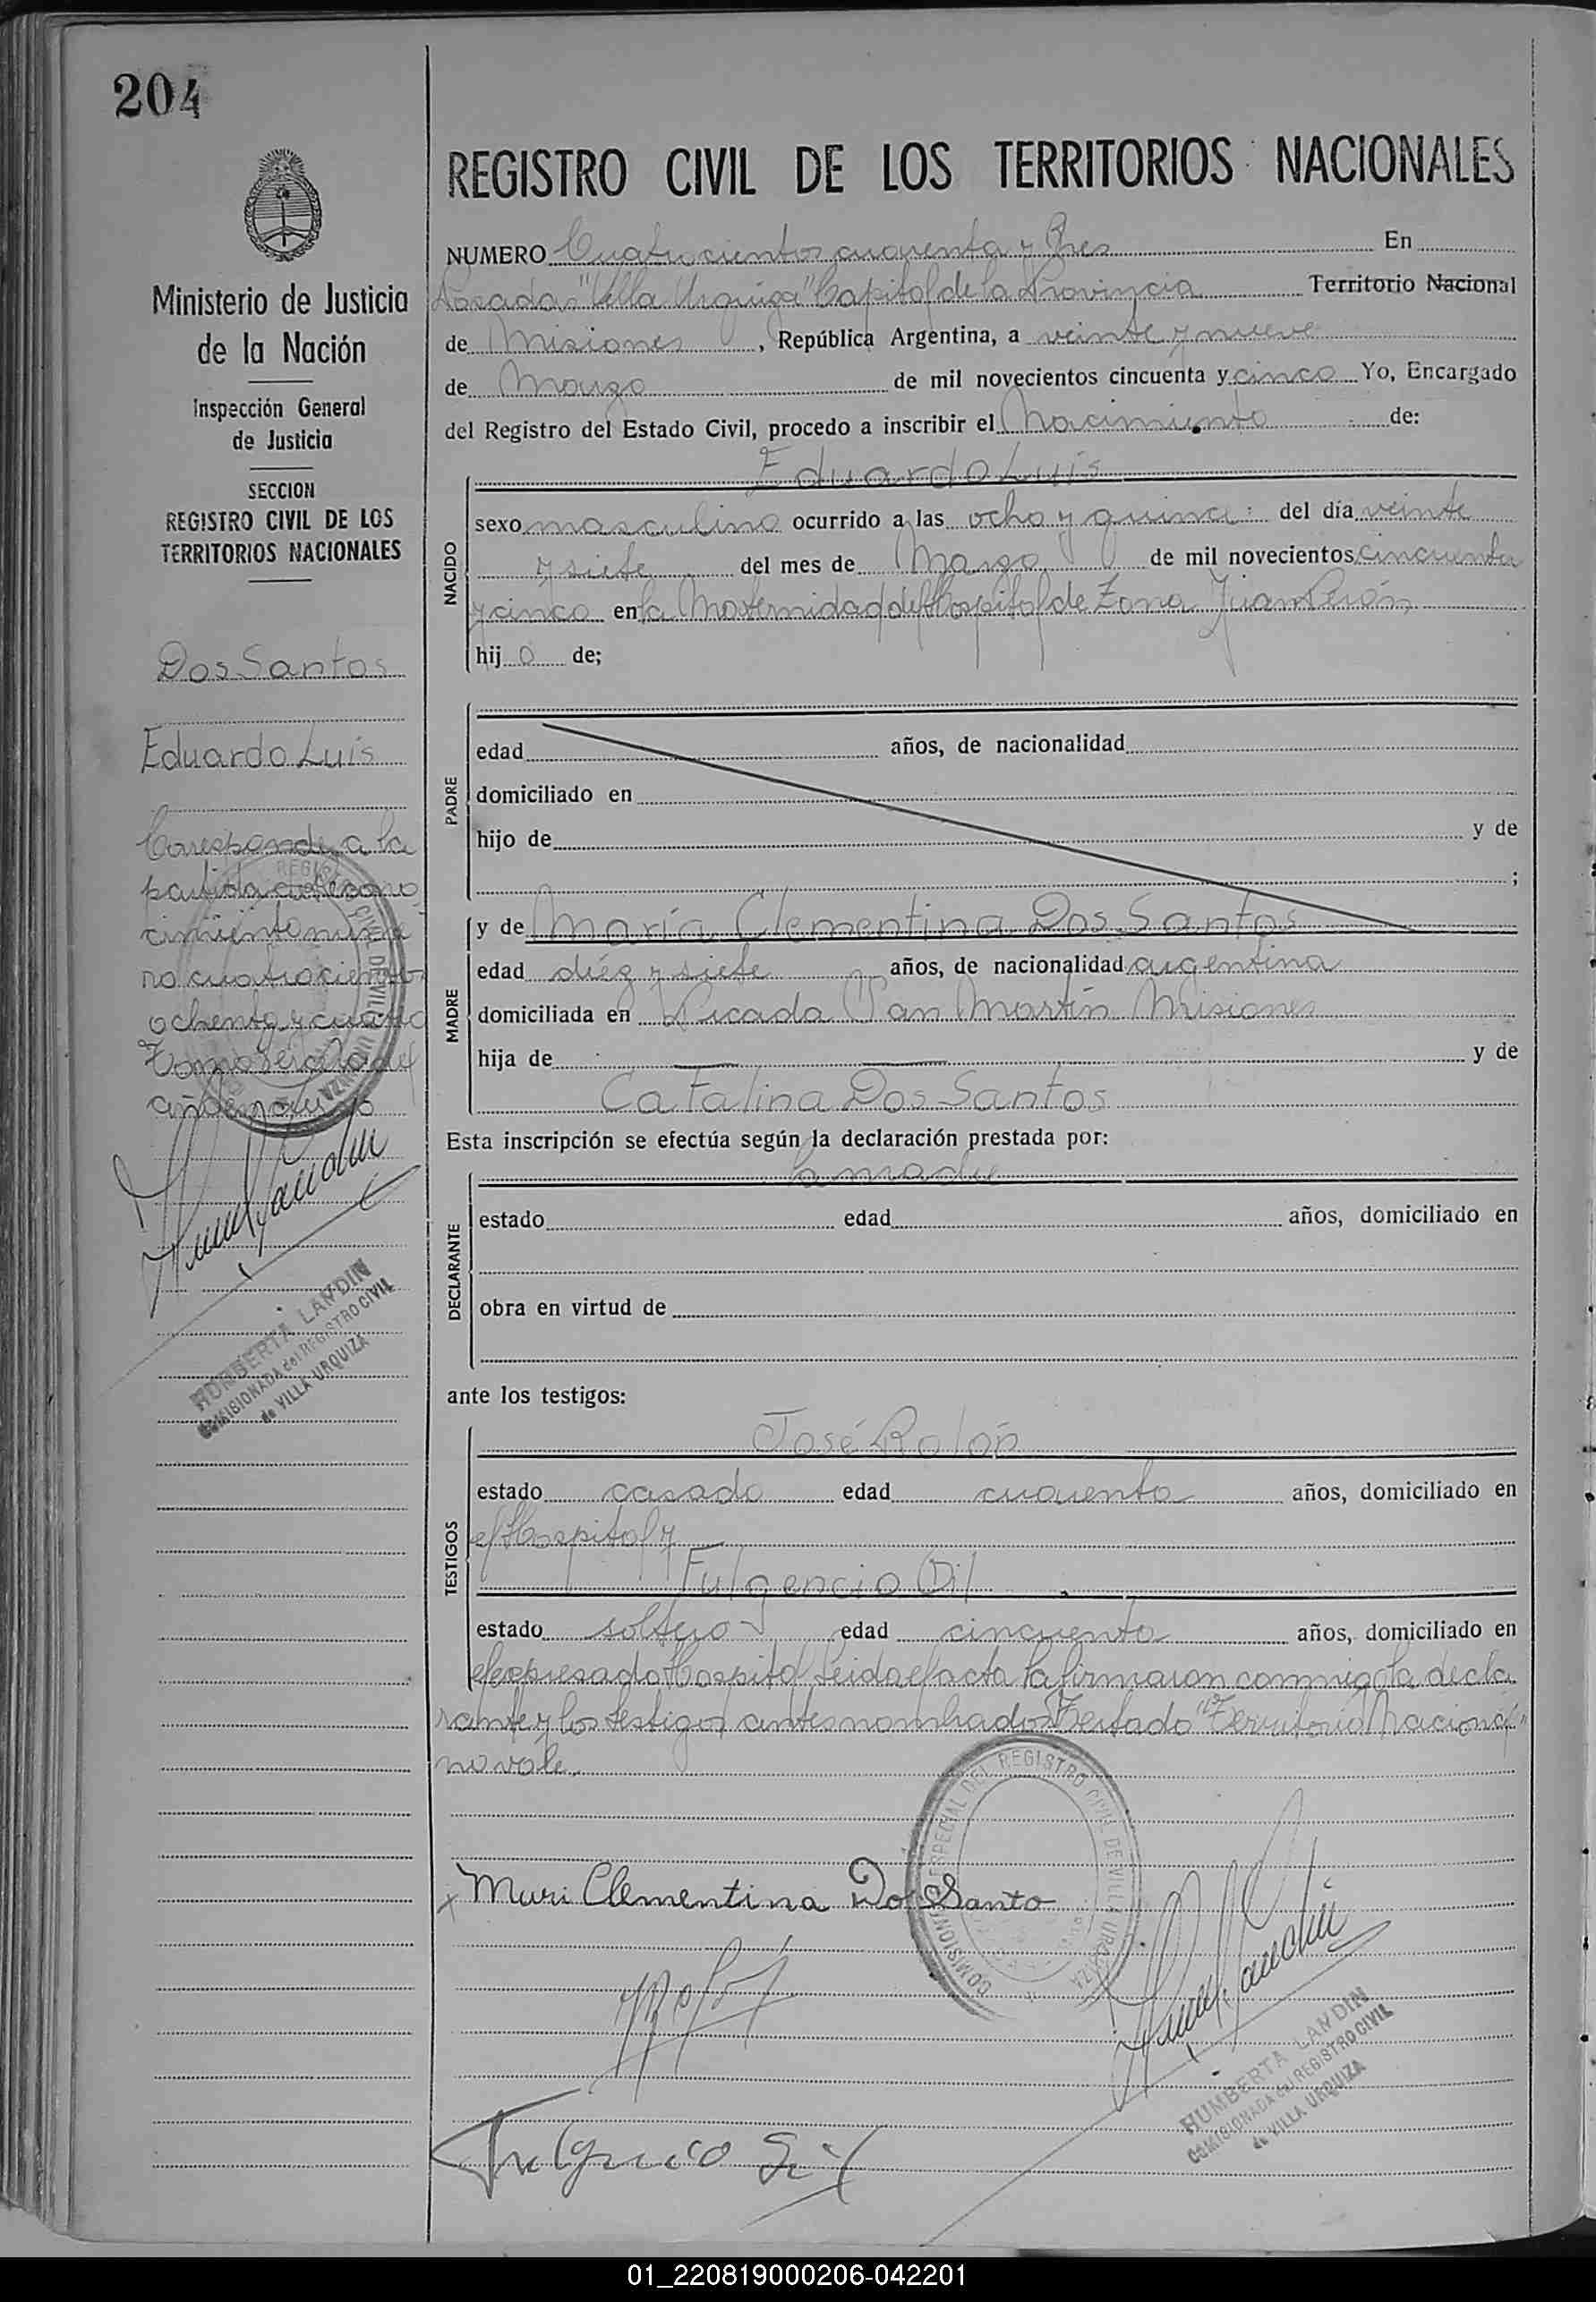 204
Ministerio de Justicia
de la Nación
Inspección General
de Justicia
SECCION
REGISTRO CIVIL DE LOS
TERRITORIOS NACIONALES
Dos Santos
Eduardo Luis
Corresponde a la
partida de recono
cimiento núme
ro cuatrocientos
ochenta y cuatro
Tomo del
año
HUMBERTA LANDIN
COMISIONADA del REGISTRO CIVIL
de VILLA URQUIZA
REGISTRO CIVIL DE LOS TERRITORIOS NACIONALES
NUMERO Cuatrocientos cuarenta y tres En
Posadas "Villa Urquiza" Capital de la Provincia Territorio Nacional
de Misiones, República Argentina, a veinte y nueve
de Marzo de mil novecientos cincuenta y cinco Yo, Encargado
del Registro del Estado Civil, procedo a inscribir el Nacimiento de:
Eduardo Luis
NACIDO
sexo masculino ocurrido a las ocho y quince del día veinte
y siete del mes de Marzo de mil novecientos cincuenta
y cinco en la Maternidad del Hospital de Zona Juan Perón
hijo de;
PADRE
edad años, de nacionalidad
domiciliado en
hijo de y de
;
MADRE
y de María Clementina Dos Santos
edad diéz y siete años, de nacionalidad argentina
domiciliada en Picada San Martín Misiones
hija de y de
Catalina Dos Santos
Esta inscripción se efectúa según la declaración prestada por:
la madre
DECLARANTE
estado edad años, domiciliado en
obra en virtud de
ante los testigos:
TESTIGOS
José Rolón
estado casado edad cuarenta años, domiciliado en
el Hospital y
Fulgencio Gil
estado soltero edad cincuenta años, domiciliado en
el expresado Hospital Leida el acta la firmaron conmigo la decla
rante y los testigos antes nombrados Testado "Territorio Nacional"
no vale.
COMISIONADO ESPECIAL DEL REGISTRO CIVIL DE VILLA URQUIZA
x Mari Clementina Do Santo
Fulgencio Gil
HUMBERTA LANDIN
COMISIONADA del REGISTRO CIVIL
de VILLA URQUIZA
01_220819000206-042201